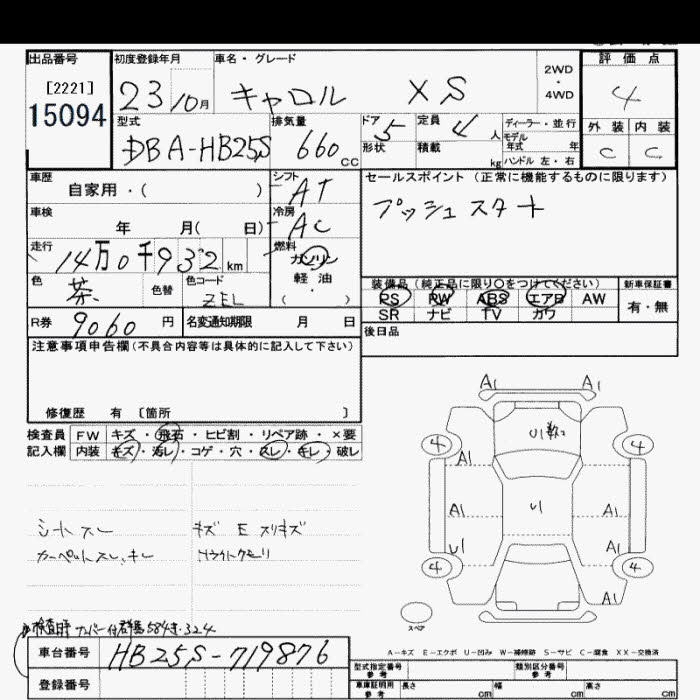 出品番号 初度登録年月 車名・グレード 評価点
[2221] 2WD
15094 23 10月 キャロル XS ・ 4WD 4
型式 排気量 ドア 定員 ディーラー・並行 外装 内装
DBA-HB25S 660 cc 5 4人 モデル年式 年 C C
形状 積載 kg ハンドル 左・右
車歴 シフト セールスポイント (正常に機能するものに限ります)
自家用・( ) AT プッシュスタート
車検 冷房
年 月( 日) AC
走行 燃料
14万0千932km ガソリン
色 色替 色コード 軽油 装備品(純正品に限り○をつけてください) 新車保証書
茶 ZEL ( ・ ) PS PW ABS エアB AW 有・無
SR ナビ TV カワ
R券 9060円 名変通知期限 月 日 後日品
注意事項申告欄(不具合内容等は具体的に記入して下さい)
修復歴 有 〔箇所 〕
検査員 FW キズ・飛石・ヒビ割・リペア跡・×要
記入欄 内装 キズ・汚レ・コゲ・穴・スレ・キレ・破レ
A1 A1
U1
4 4
A1
A1 U1 A1
U1 A1
4 4
A1
シートスレ キズ E スリキズ
カーペットスレ、キレ
スペア
検査時ナンバー付群馬584き・324
A-キズ E-エクボ U-凹み W-補修跡 S-サビ C-腐食 XX-交換済
車台番号 HB25S-719876 型式指定番号 参考 類別区分番号 参考
登録番号 車庫証明用 参考 長さ cm 幅 cm 高さ cm